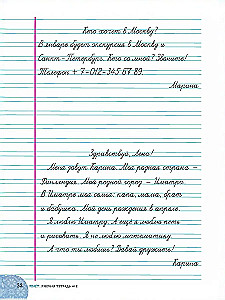 Кто хочет в Москву?
В январе будет экскурсия в Москву и
Санкт-Петербург. Кто со мной? Звоните!
Телефон + 7-012-345 67 89.
Марина
Здравствуй, Лена!
Меня зовут Карина. Моя родная страна –
Финляндия. Мой родной город – Иматра.
В Иматре моя семья: папа, мама, брат
и бабушка. Мой день рождения в апреле.
Я люблю Иматру. А ещё я люблю петь
и рисовать. Я не люблю математику.
А что ты любишь? Давай дружить!
Карина
РАБОЧАЯ ТЕТРАДЬ